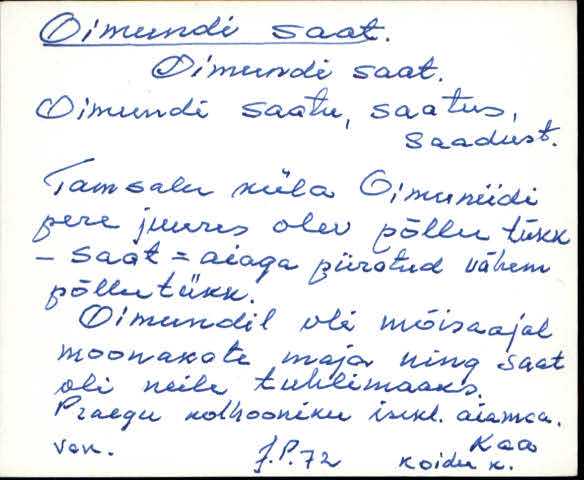 Oimundi saat.
Oimundi saat.
Oimundi saatu, saatus,
saadust.
Tamsalu küla Oimuniidi
pere juures olev põllu tükk
– saat = aiaga piiratud vähem
põllutükk.
Oimundil oli mõisaajal
moonakate maja ning saat
oli neile tuhlimaaks.
Praegu kolhooniku isikl. aiamaa.
Kaa
van. J.P. 72 Koidu k.